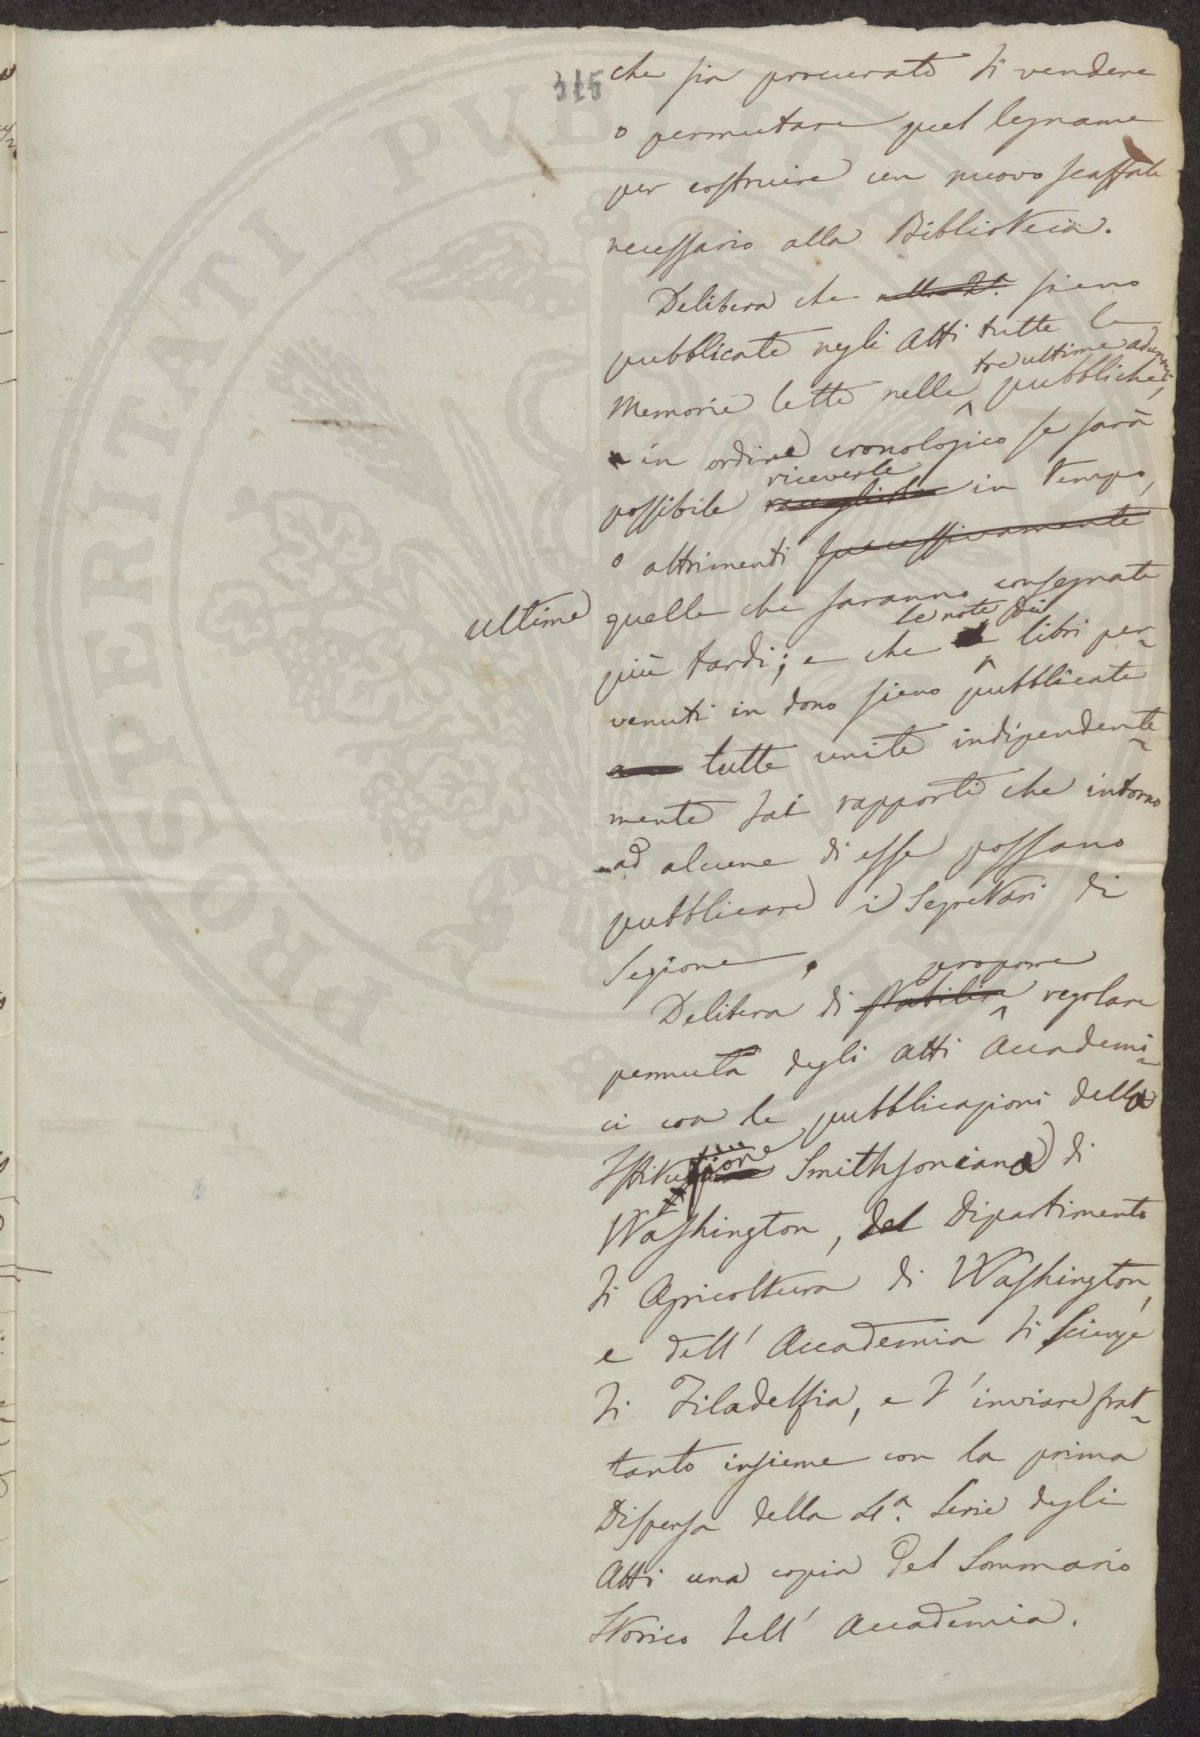 315
che sia procurato di vendere
o permutare quel legname
per costruire un nuovo scaffale
necessario alla Biblioteca.
Delibera che nella 4ª. sieno
pubblicate negli Atti tutte le
tre ultime adunanze
Memorie lette nelle pubbliche,
in ordine cronologico se sarà
riceverle
possibile raccoglierle in tempo,
o altrimenti successivamente
ultime quelle che saranno consegnate
le note dei
più tardi; e che libri per-
venuti in dono sieno pubblicate
tutte unite indipendente-
mente dai rapporti che intorno
ad alcune di esse possano
pubblicare i Segretari di
Sezione.
proporre
Delibera di stabilire regolare
permuta degli Atti Accademi-
ci con le pubblicazioni della
Istituzione Smithsoniana di
Washington, del Dipartimento
di Agricoltura di Washington,
e dell' Accademia di Scienze
di Filadelfia, e d' inviare frat-
tanto insieme con la prima
Dispensa della 4ª. Serie degli
Atti una copia del Sommario
Storico dell' Accademia.
PROSPERITATI PUBLICAE